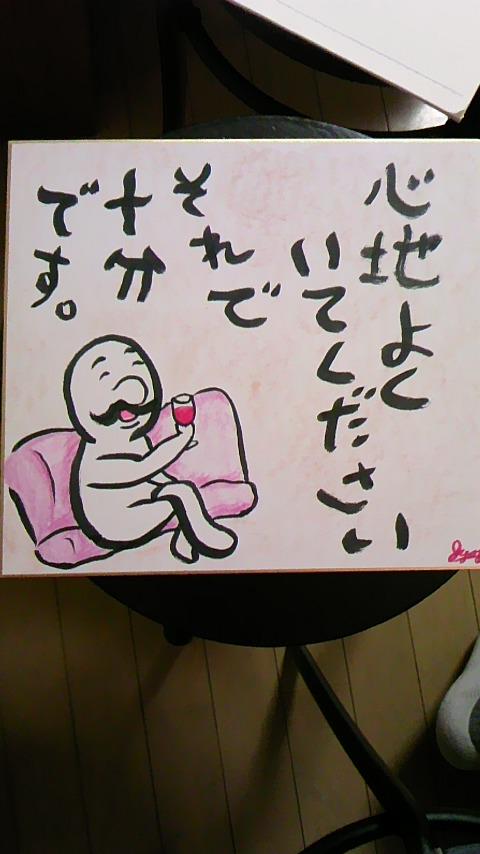 心地よく
いてください
それで
十分
です。